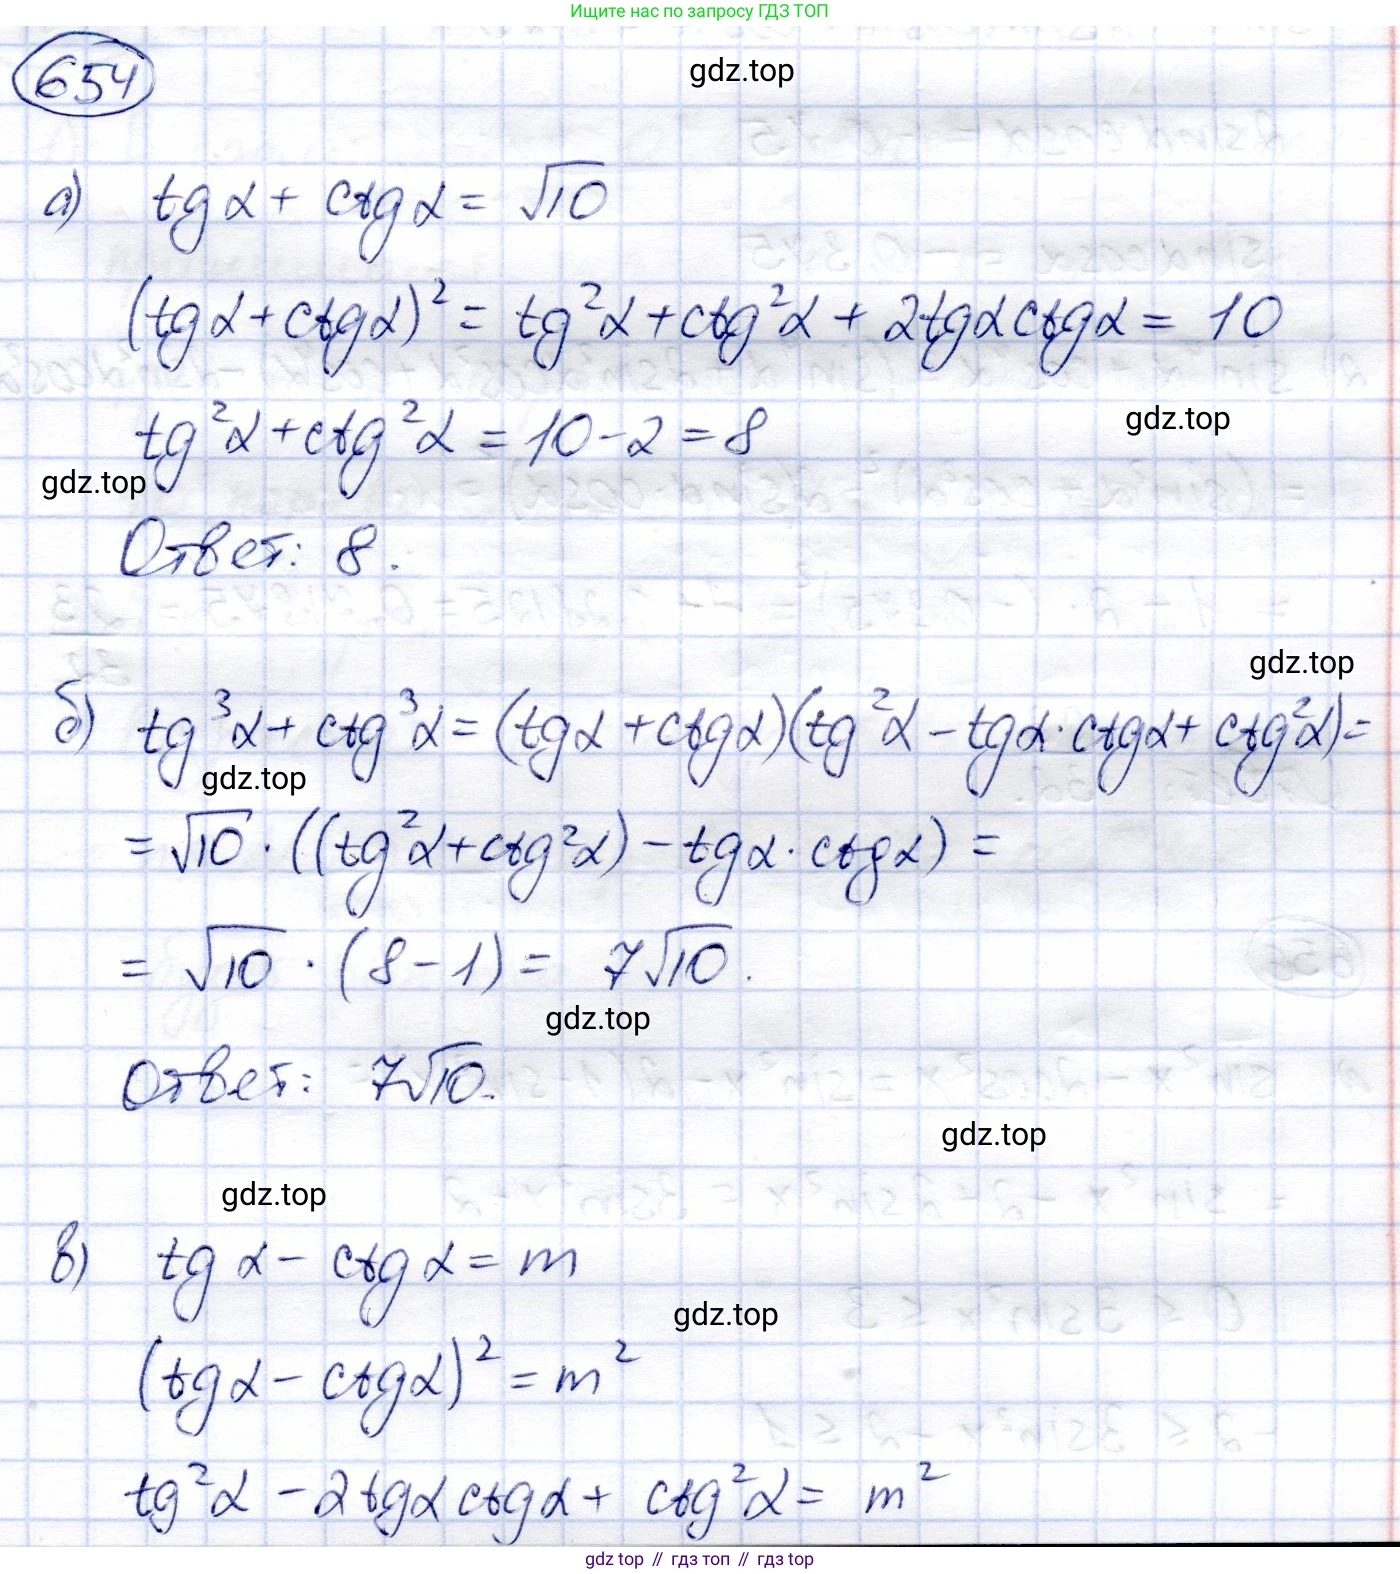 Ищите нас по запросу ГДЗ ТОП
654
gdz.top
а) tg α + ctg α = √10
(tgα + ctgα)² = tg²α + ctg²α + 2tgα ctgα = 10
tg²α + ctg²α = 10 - 2 = 8
gdz.top
gdz.top
Ответ: 8.
gdz.top
б) tg³α + ctg³α = (tgα + ctgα)(tg²α - tgα · ctgα + ctg²α) =
gdz.top
= √10 · ((tg²α + ctg²α) - tgα · ctgα) =
= √10 · (8 - 1) = 7√10.
gdz.top
Ответ: 7√10.
gdz.top
gdz.top
в) tg α - ctg α = m
gdz.top
(tgα - ctgα)² = m²
tg²α - 2tgα ctgα + ctg²α = m²
gdz top // гдз топ // гдз top